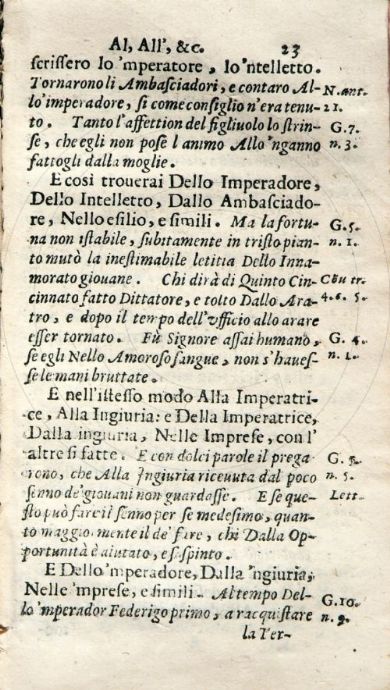 Al, All', &c. 23
scrissero lo 'mperatore, lo 'ntelletto.
Tornarono li Ambasciadori, e contaro Al- N. ant.
lo 'imperadore, sì come consiglio n'era tenu- 21.
to. Tanto l'affettion del figliuolo lo strin- G. 7.
se, che egli non pose l'animo Allo 'nganno n. 3.
fattogli dalla moglie.
E così trouerai Dello Imperadore,
Dello Intelletto, Dallo Ambasciado-
re, Nello esilio, e simili. Ma la fortu- G. 5.
na non istabile, subitamente in tristo pian- n. 1.
to mutò la inestimabile letitia Dello Inna-
morato giouane. Chi dirà di Quinto Cin
cinnato fatto Dittatore, e tolto Dallo Ara- 4. 6. 5.
tro, e dopo il tempo dell'vfficio allo arare
esser tornato. Fù Signore assai humano, G. 4.
se egli Nello Amoroso sangue, non s'haues- n. 1.
se le mani bruttate.
E nell'istesso modo Alla Imperatri-
ce, Alla Ingiuria: e Della Imperatrice,
Dalla ingiuria, Nelle Imprese, con l'
altre sì fatte. E con dolci parole il prega G. 5.
rono, che Alla Ingiuria riceuuta dal poco n. 5.
senno de'giouani non guardasse. E se que- Lett.
sto può fare il senno per se medesimo, quan-
to maggiormente il de' fare, chi Dalla Op-
portunità è aiutato, e sospinto.
E Dello 'mperadore, Dalla 'ngiuria,
Nelle 'mprese, e simili. Al tempo Del- G. 10.
lo 'mperador Federigo primo, a racquistare n. 9.
la Ter-